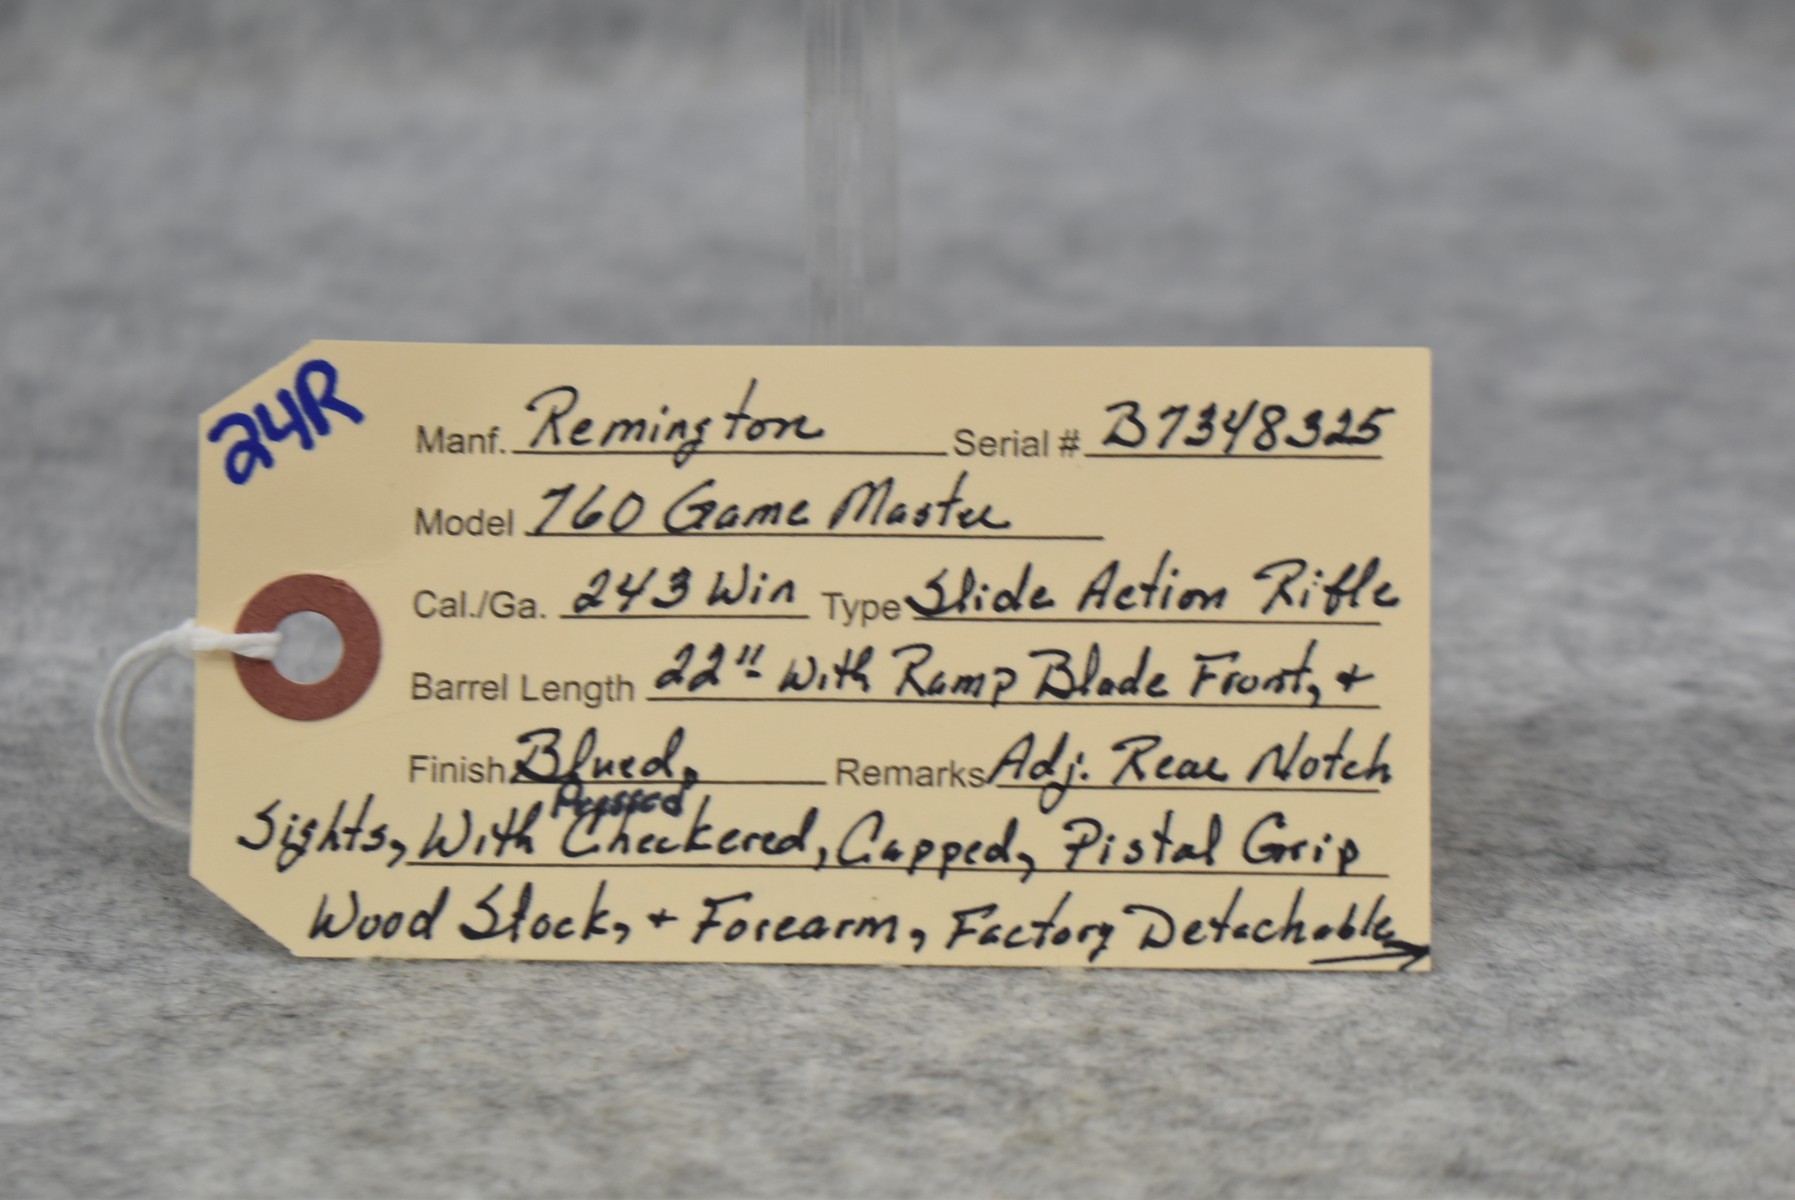 24R
Manf. Remington Serial # B7348325
Model 760 Game Master
Cal./Ga. 243 Win Type Slide Action Rifle
Barrel Length 22" With Ramp Blade Front, +
Finish Blued, Remarks Adj. Rear Notch
Pressed
Sights, With Checkered, Capped, Pistal Grip
Wood Stock, + Forearm, Factory Detachable →